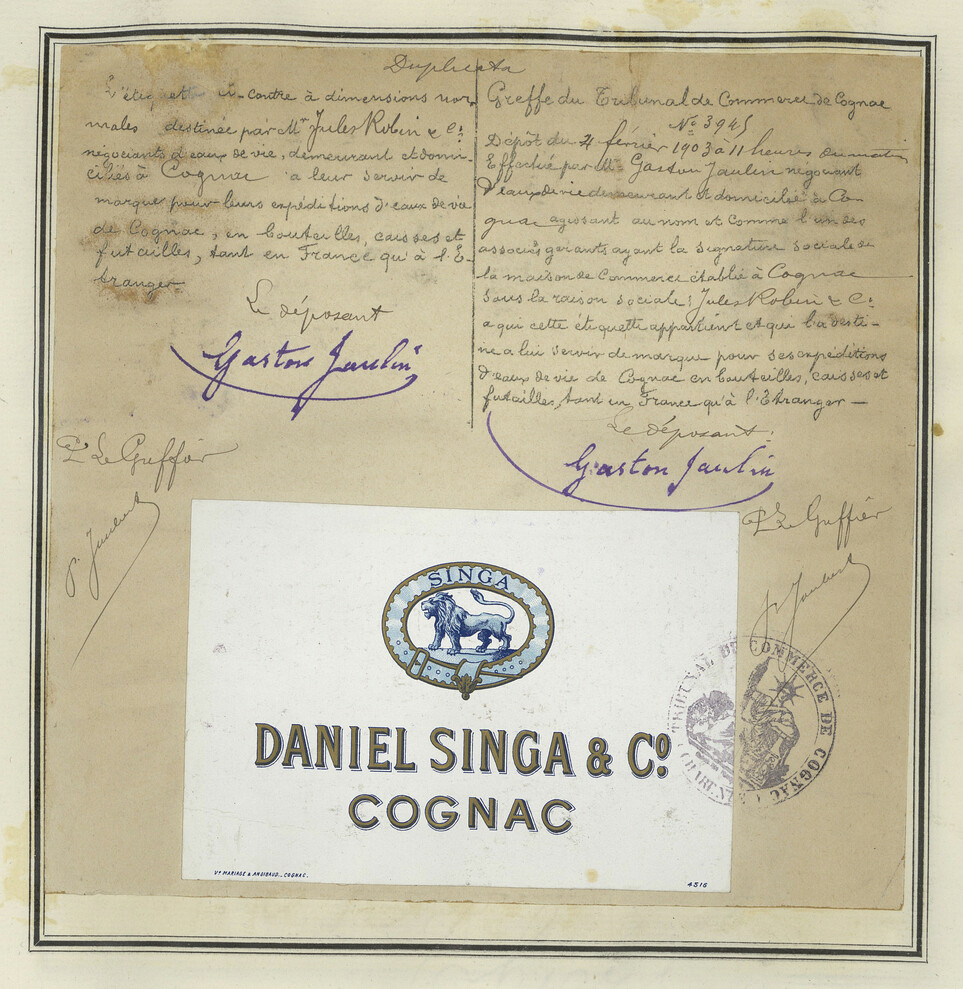 Duplicata
L'étiquette ci-contre à dimensions nor-
males destinée par Mr Jules Robin & Cie
négociants d'eaux de vie, demeurant et domi-
ciliés à Cognac a leur servir de
marque pour leurs expéditions d'eaux de vie
de Cognac, en bouteilles, caisses et
futailles, tant en France qu'à l'E-
tranger.
Le déposant
Gaston Jaulin
P. Le Greffier
P. Jaubert
Greffe du Tribunal de Commerce de Cognac
No 3945
Dépôt du 4 février 1903 à 11 heures du matin
Effectué par Mr Gaston Jaulin négociant
d'eaux de vie demeurant et domicilié à Co-
gnac agissant au nom et comme l'un des
associés gérants ayant la signature sociale de
la maison de Commerce établie à Cognac
sous la raison sociale: Jules Robin & Cie
a qui cette étiquette appartient et qui l'a desti-
née a lui servir de marque pour ses expéditions
d'eaux de vie de Cognac en bouteilles, caisses et
futailles, tant en France qu'à l'Etranger —
Le déposant:
Gaston Jaulin
P. Le Greffier
P. Jaubert
TRIBUNAL DE COMMERCE DE COGNAC
(CHARENTE)
SINGA
DANIEL SINGA & Co.
COGNAC
Ve MARIAGE & ANGIBAUD_COGNAC.
4516